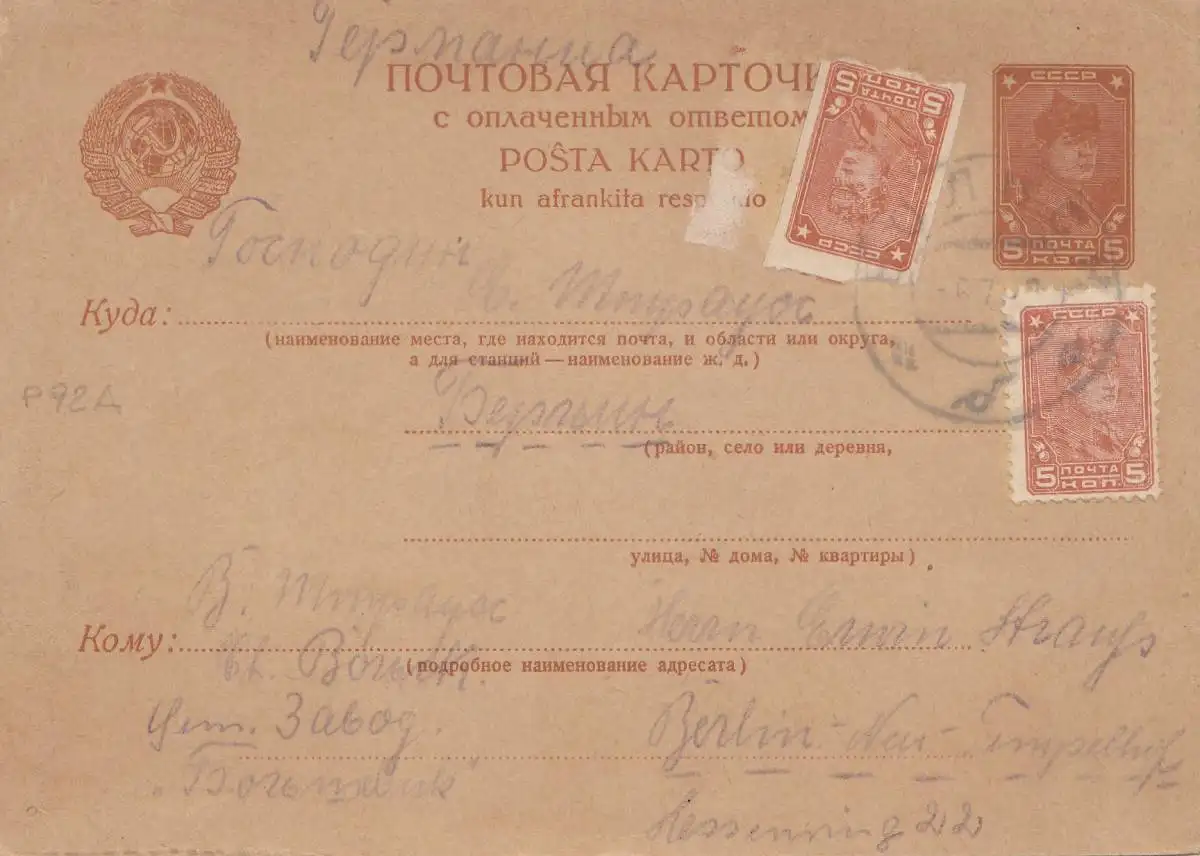 Германиа
ПОЧТОВАЯ КАРТОЧК
с оплаченным ответом
POŜTA KARTO
kun afrankita resp do
СССР
5 ПОЧТА 5
КОП.
5 ПОЧТА 5
КОП.
СССР
Господин
Куда:
(наименование места, где находится почта, и области или округа,
а для станций — наименование ж. д.)
СССР
5 ПОЧТА 5
КОП.
Р92Д
Берлин
(район, село или деревня,
улица, № дома, № квартиры)
В.
Herrn Erwin Strauss
Кому:
(подробное наименование адресата)
Завод
Berlin-Neu-Tempelhof
Hessenring 22